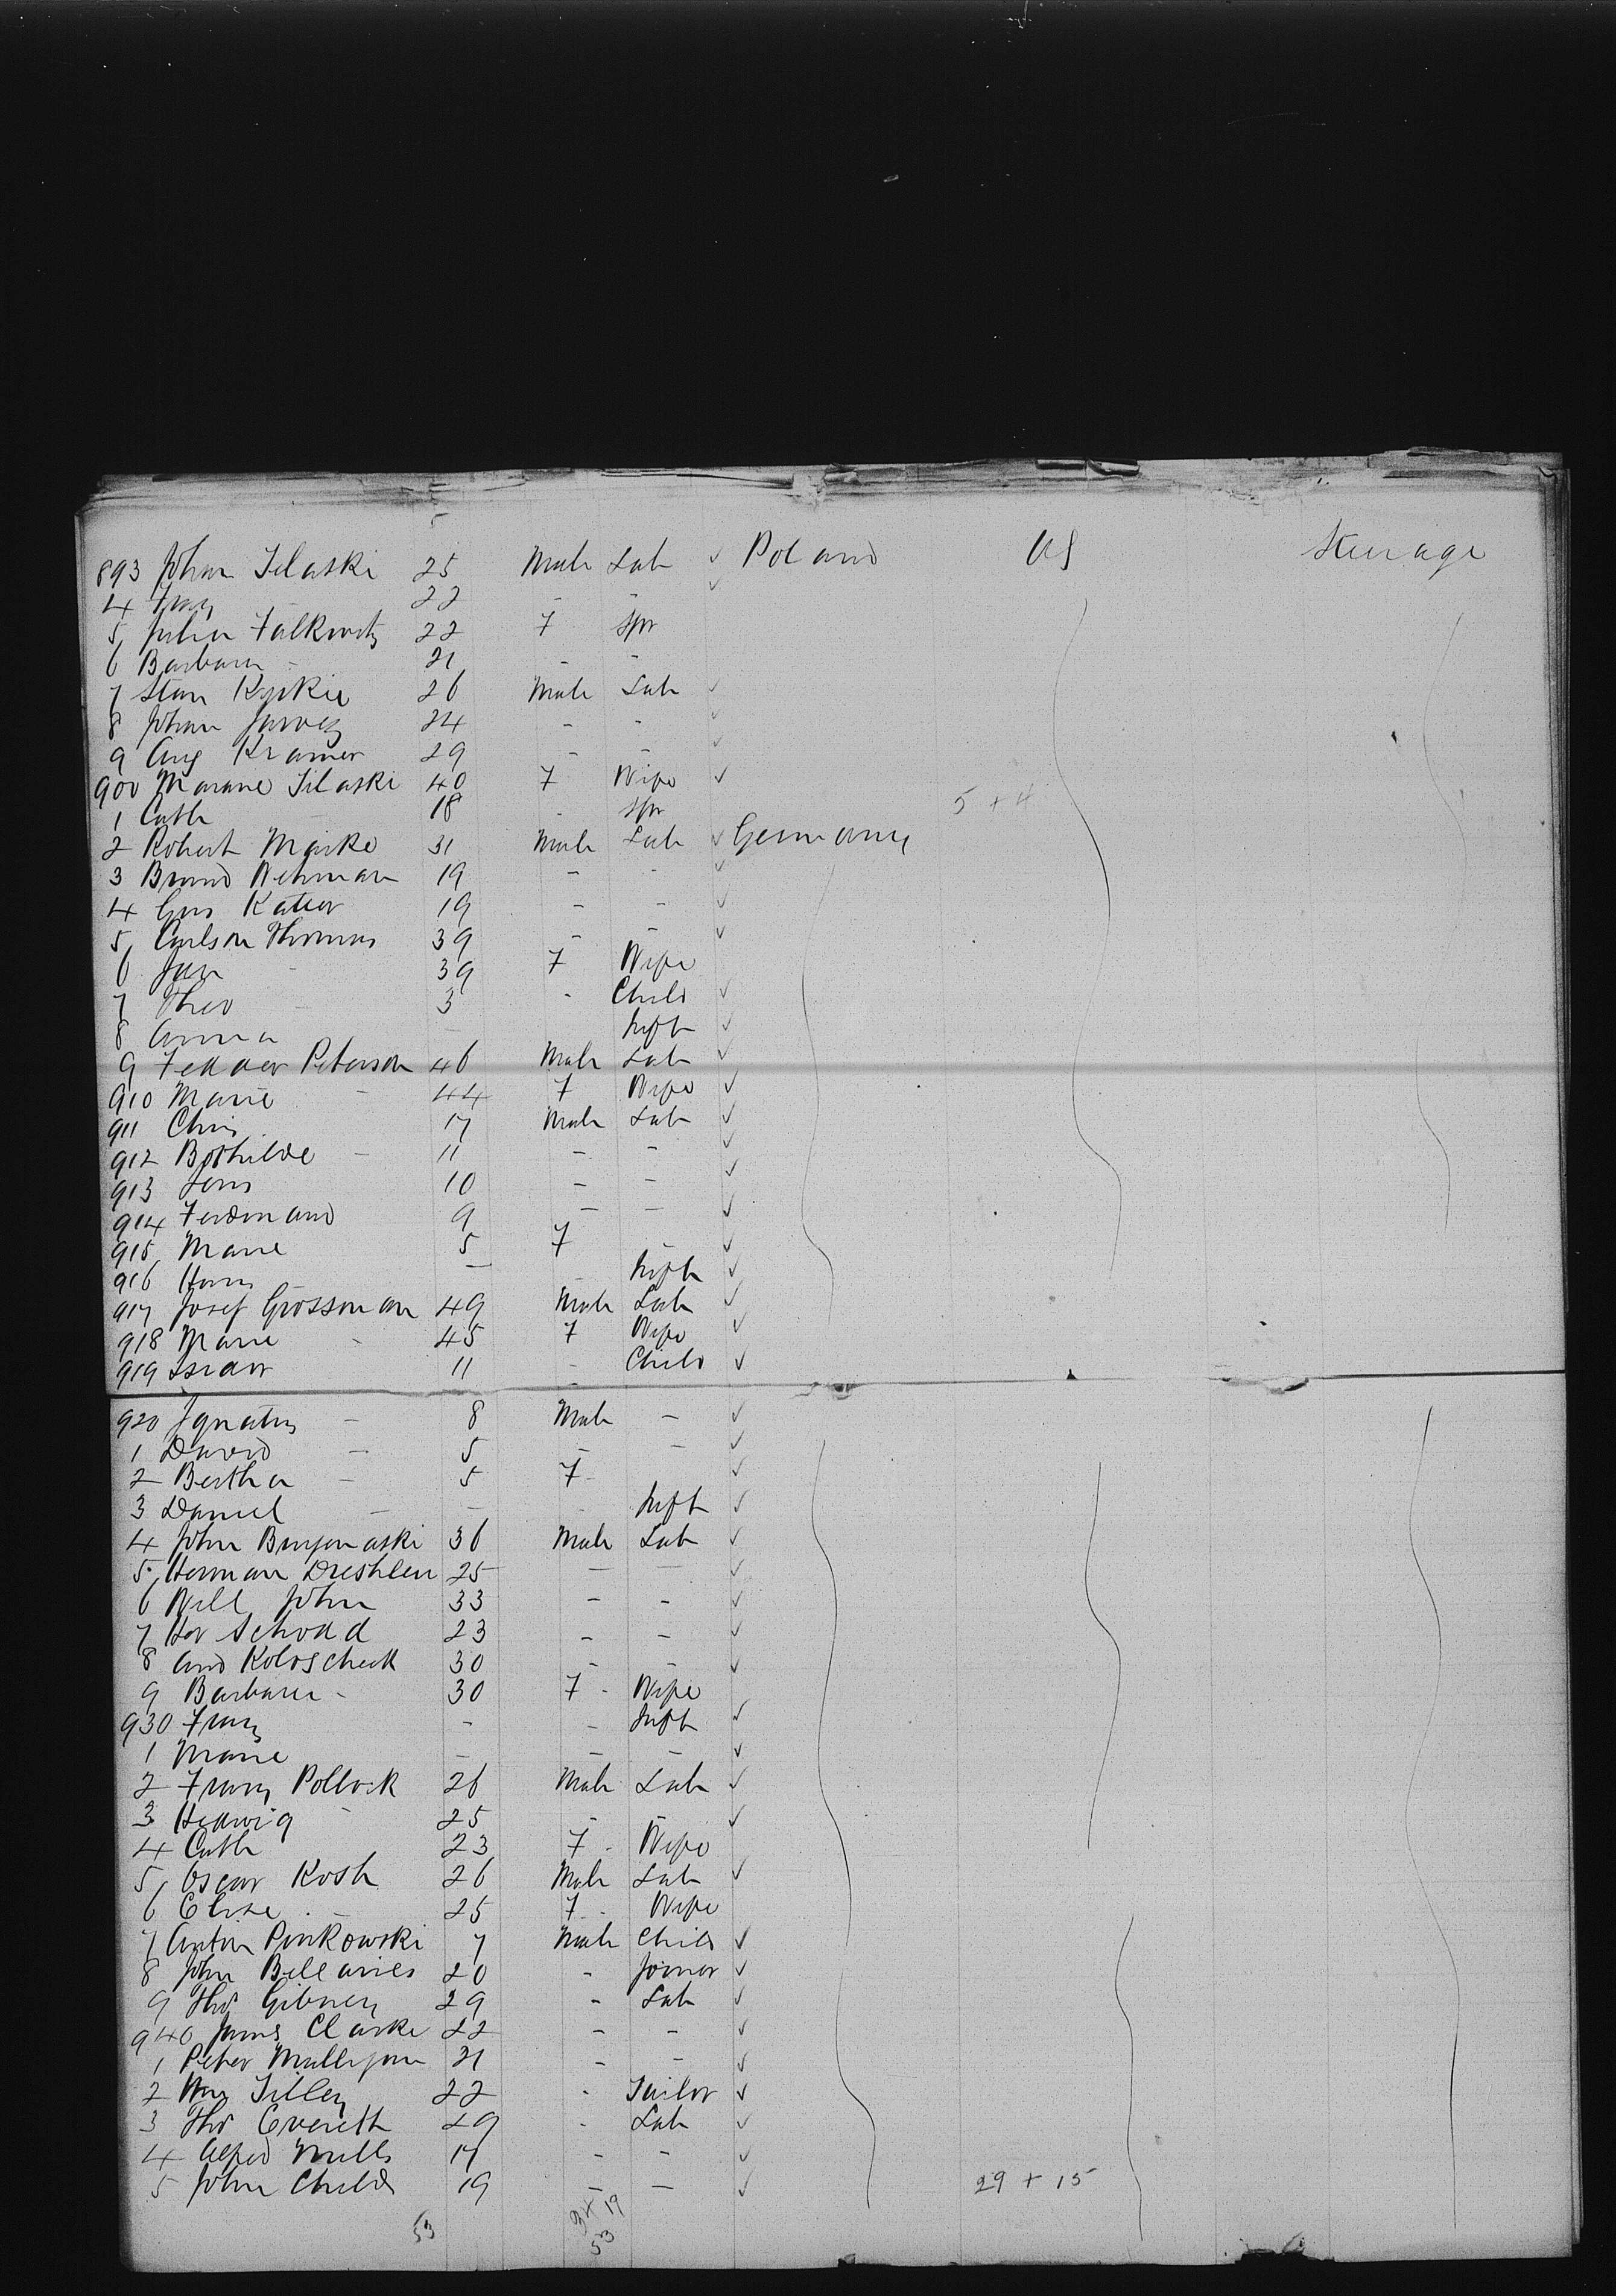 893 Johan Silaski 25 Male Lab ✓ Poland US Steerage
4 Franz - 22 - - ✓
5 Julia Falkowitz 22 F Spr
6 Barbara - 21 - -
7 Stan 26 Male Lab ✓
8 Johan 24 - - ✓
9 Aug Kramer 29 - - ✓
900 Marane Silaski 40 F Wife ✓
1 Cath - 18 - Spr 5 + 4
2 Robert Marke 31 Male Lab ✓ Germany
3 Bruno Wehman 19 - - ✓
4 Gus 19 - - ✓
5 Carlson Thomas 39 - - ✓
6 Jan - 39 F Wife
7 Theo - 3 - Child ✓
8 Anna - Inft ✓
9 Feddor Peterson 46 Male Lab ✓
910 Marie - 44 F Wife ✓
911 Chris 17 Male Lab ✓
912 Bothilde - 11 - - ✓
913 Jens 10 - - ✓
914 Ferdinand 9 - - ✓
915 Marie 5 F - ✓
916 Hans - - Inft ✓
917 Josef Grossman 49 Male Lab ✓
918 Marie - 45 F Wife ✓
919 Isidor 11 - Child ✓
920 Ignatus - 8 Male - ✓
1 David - 5 - - ✓
2 Bertha - 5 F - ✓
3 Daniel - - - Inft ✓
4 John 36 Male Lab ✓
5 Herman Dreshlen 25 - - ✓
6 Will John 33 - - ✓
7 Her Schodd 23 - - ✓
8 And Koloscheck 30 - - ✓
9 Barbara - 30 F - Wife
930 Franz - - Inft ✓
1 Marie - - - ✓
2 Franz Pollock 26 Male Lab ✓
3 Hedwig - 25 - - ✓
4 Cath 23 F - Wife
5 Oscar Kosh 26 Male Lab ✓
6 Elise - 25 F - Wife
7 Anton Pinkowski 7 Male Child ✓
8 John 20 - Joiner ✓
9 Thos Gibney 29 - Lab ✓
940 James Clarke 22 - - ✓
1 Peter Mulligan 21 - - ✓
2 Wm Tilley 22 - Tailor ✓
3 Thos Everett 29 - Lab ✓
4 Alfred Mills 17 - - ✓
5 John Childs 19 - - ✓ 29 + 15
53 34 19
53